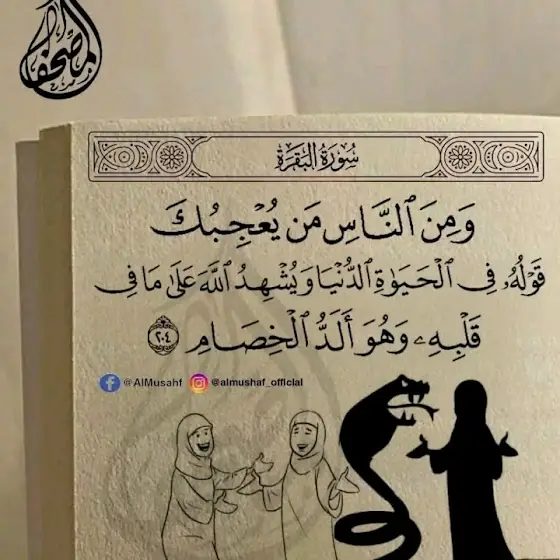 المصحف
سُورَةُ البَقَرَةِ
وَمِنَ ٱلنَّاسِ مَن يُعْجِبُكَ
قَوْلُهُۥ فِى ٱلْحَيَوٰةِ ٱلدُّنْيَا وَيُشْهِدُ ٱللَّهَ عَلَىٰ مَا فِى
قَلْبِهِۦ وَهُوَ أَلَدُّ ٱلْخِصَامِ ٢٠٤
@AlMusahf @almushaf_official